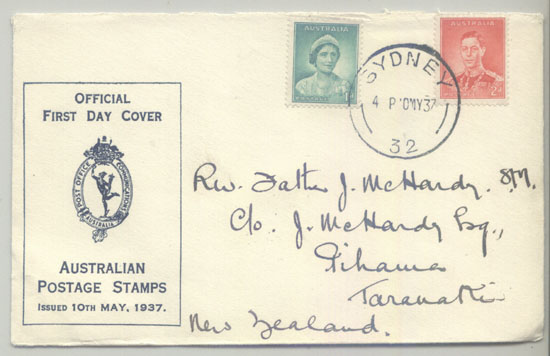 OFFICIAL
FIRST DAY COVER
POST OFFICE COMMUNICATIONS
AUSTRALIA
AUSTRALIAN
POSTAGE STAMPS
ISSUED 10TH MAY, 1937.
AUSTRALIA
AUSTRALIA
SYDNEY
4 P 10MY37
32
Rev. Father J. McHardy. S.M.
C/o. J. McHardy Esq.,
Pihama
Taranaki
New Zealand.